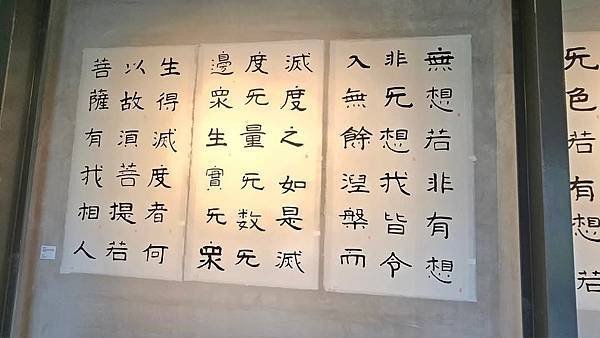 无色若有想若
無想若非有想
非无想我皆令
入無餘涅槃而
滅度之如是滅
度无量无数无
邊眾生實无眾
生得滅度者何
以故須菩提若
菩薩有我相人